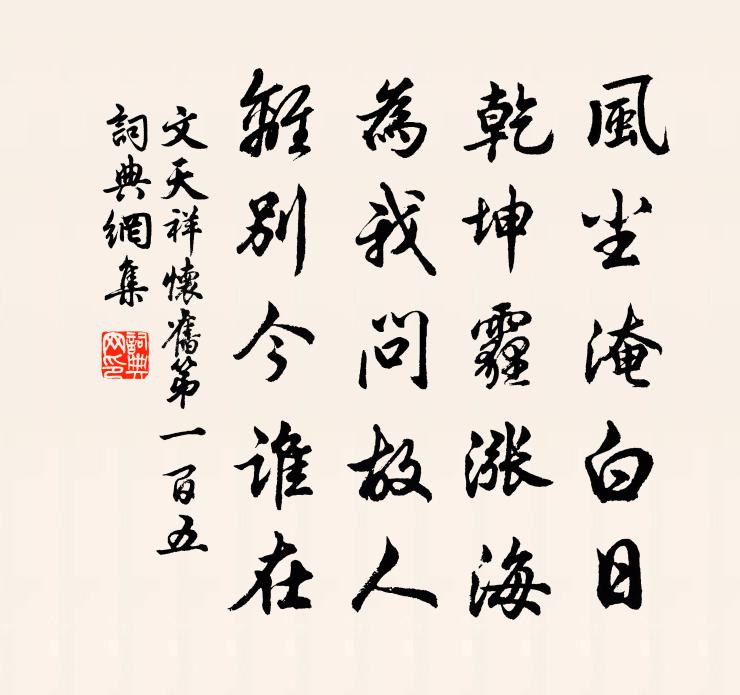 風塵淹白日
乾坤霾漲海
為我問故人
離別今誰在
文天祥懷舊第一百五
詞典網集
詞典網印